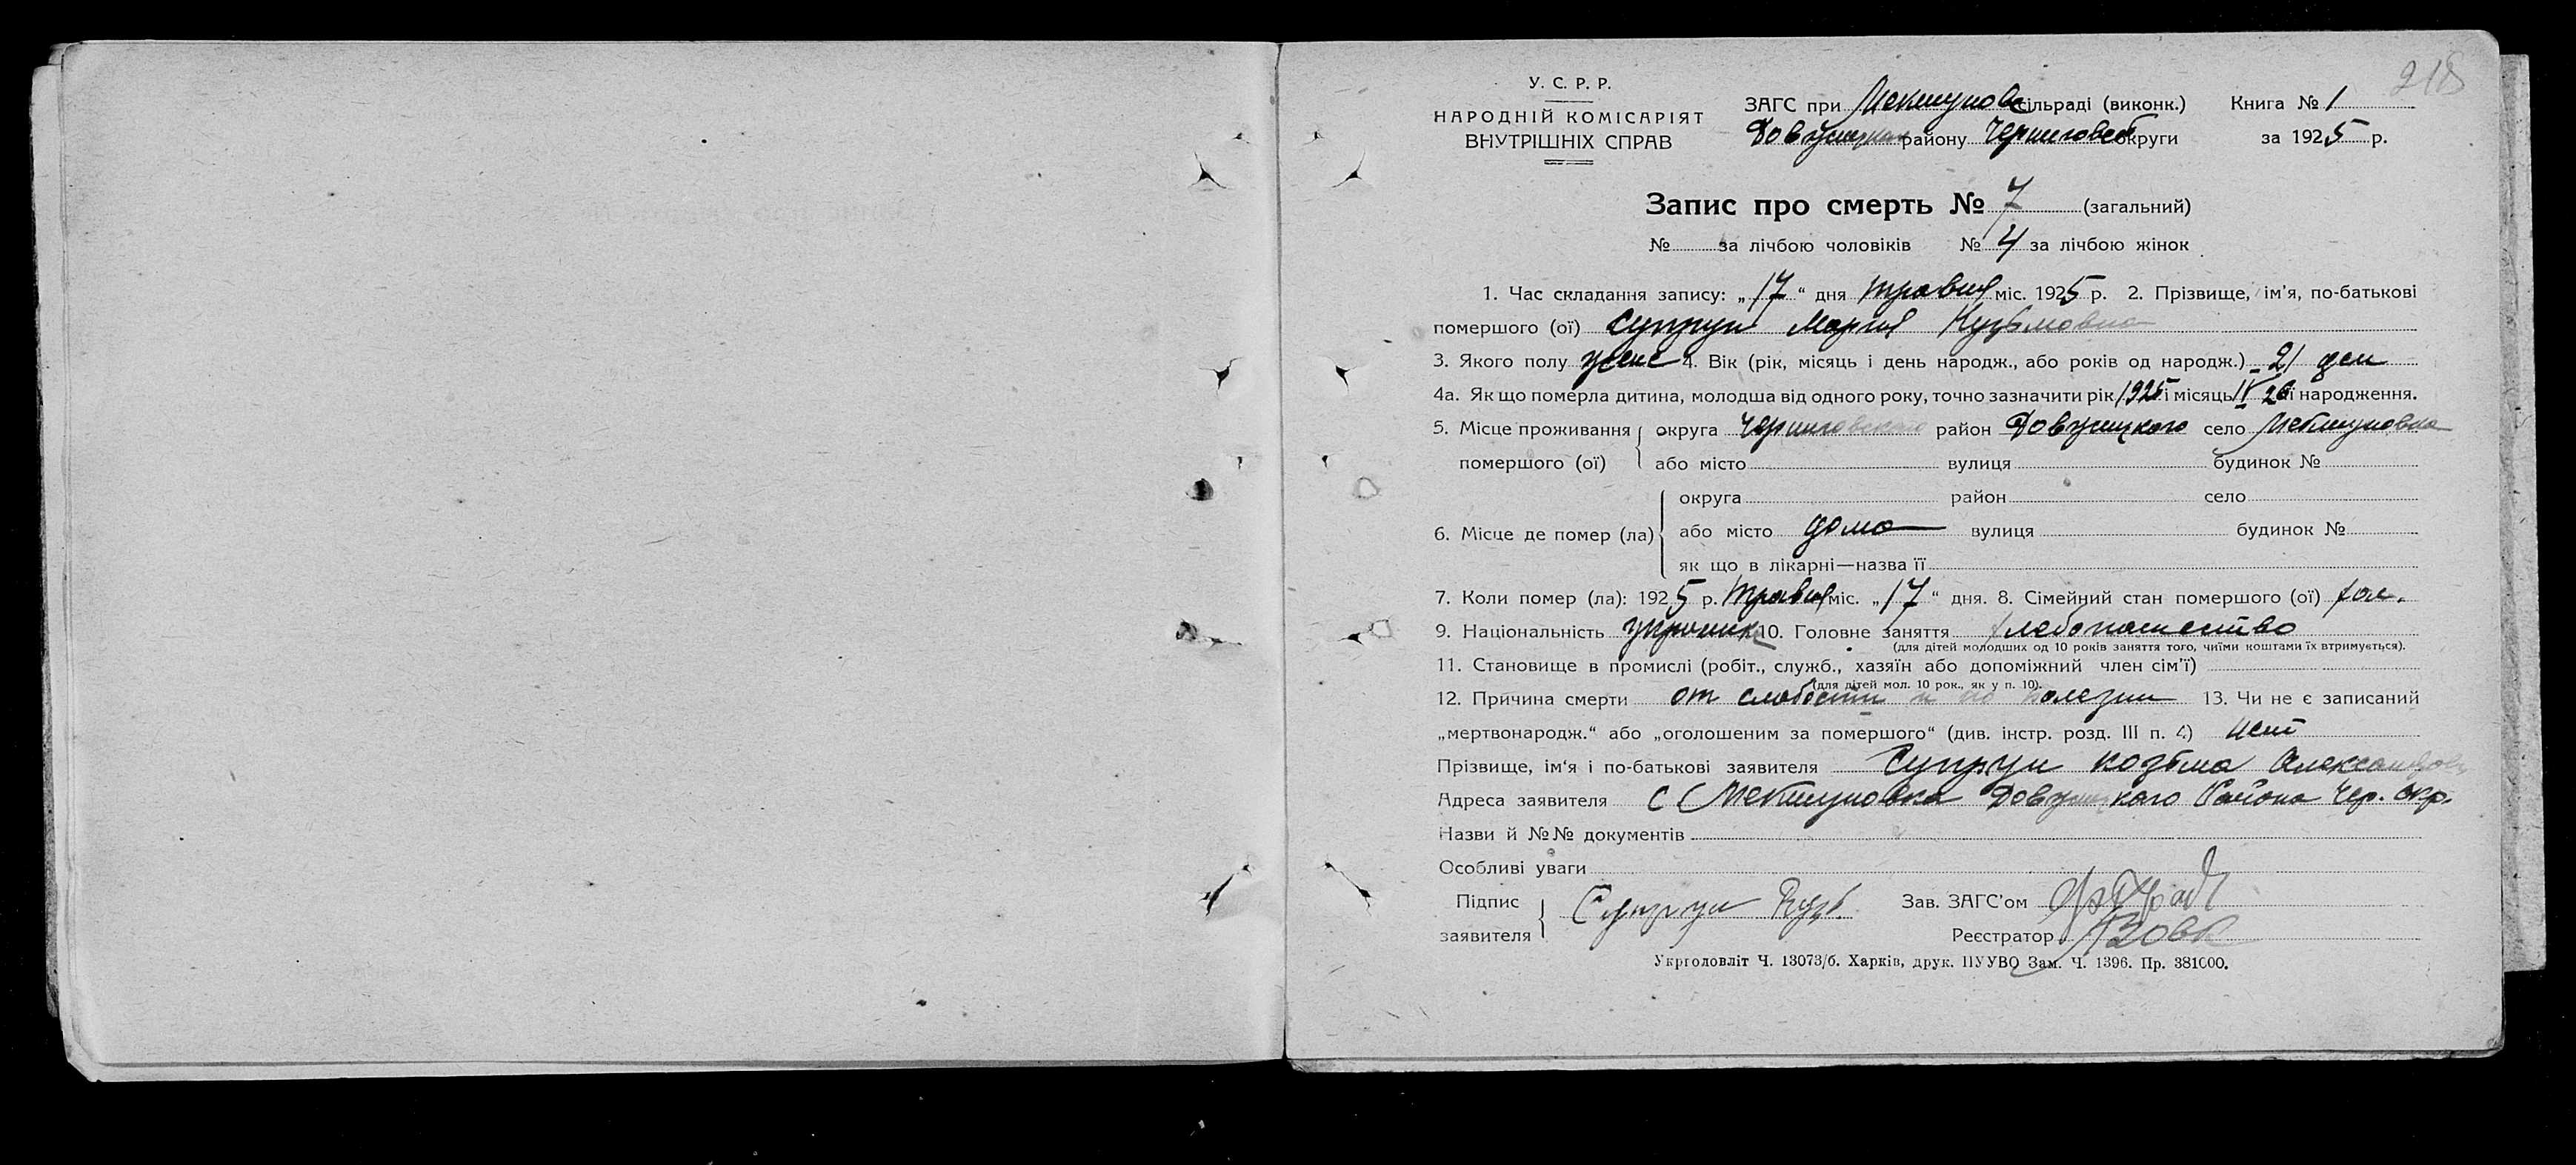 218
У. С. Р. Р.
НАРОДНІЙ КОМІСАРІЯТ
ВНУТРІШНІХ СПРАВ
ЗАГС при сільраді (виконк.) Книга № 1
району округи за 1925 р.
Запис про смерть № 7 (загальний)
№ за лічбою чоловіків № 4 за лічбою жінок
1. Час складання запису: „17“ дня травня міс. 1925 р. 2. Прізвище, ім'я, по-батькові
помершого (ої) Супрун Мария Кузьмовна
3. Якого полу жене 4. Вік (рік, місяць і день народж., або років од народж.) 21 ден
4а. Як що померла дитина, молодша від одного року, точно зазначити рік 1925 і місяць IV 26 її народження.
5. Місце проживання округа Черниговского район село
помершого (ої) або місто вулиця будинок №
округа район село
6. Місце де помер (ла) або місто дома вулиця будинок №
як що в лікарні—назва її
7. Коли помер (ла): 1925 р. травня міс. „17“ дня. 8. Сімейний стан помершого (ої)
9. Національність 10. Головне заняття хлебопашество
(для дітей молодших од 10 років заняття того, чиїми коштами їх втримується).
11. Становище в промислі (робіт., служб., хазяїн або допоміжний член сім'ї)
(для дітей мол. 10 рок., як у п. 10).
12. Причина смерти от слабости и болезни 13. Чи не є записаний
„мертвонародж.“ або „оголошеним за помершого“ (див. інстр. розд. III п. 4) нет
Прізвище, ім'я і по-батькові заявителя Супрун Козьма Александров
Адреса заявителя с Района Чер. окр.
Назви й №№ документів
Особливі уваги
Підпис
заявителя Супрун Кузь.
Зав. ЗАГС'ом
Реєстратор Вовк
Укрголовліт Ч. 13073/б. Харків, друк. ПУУВО Зам. Ч. 1396. Пр. 381000.